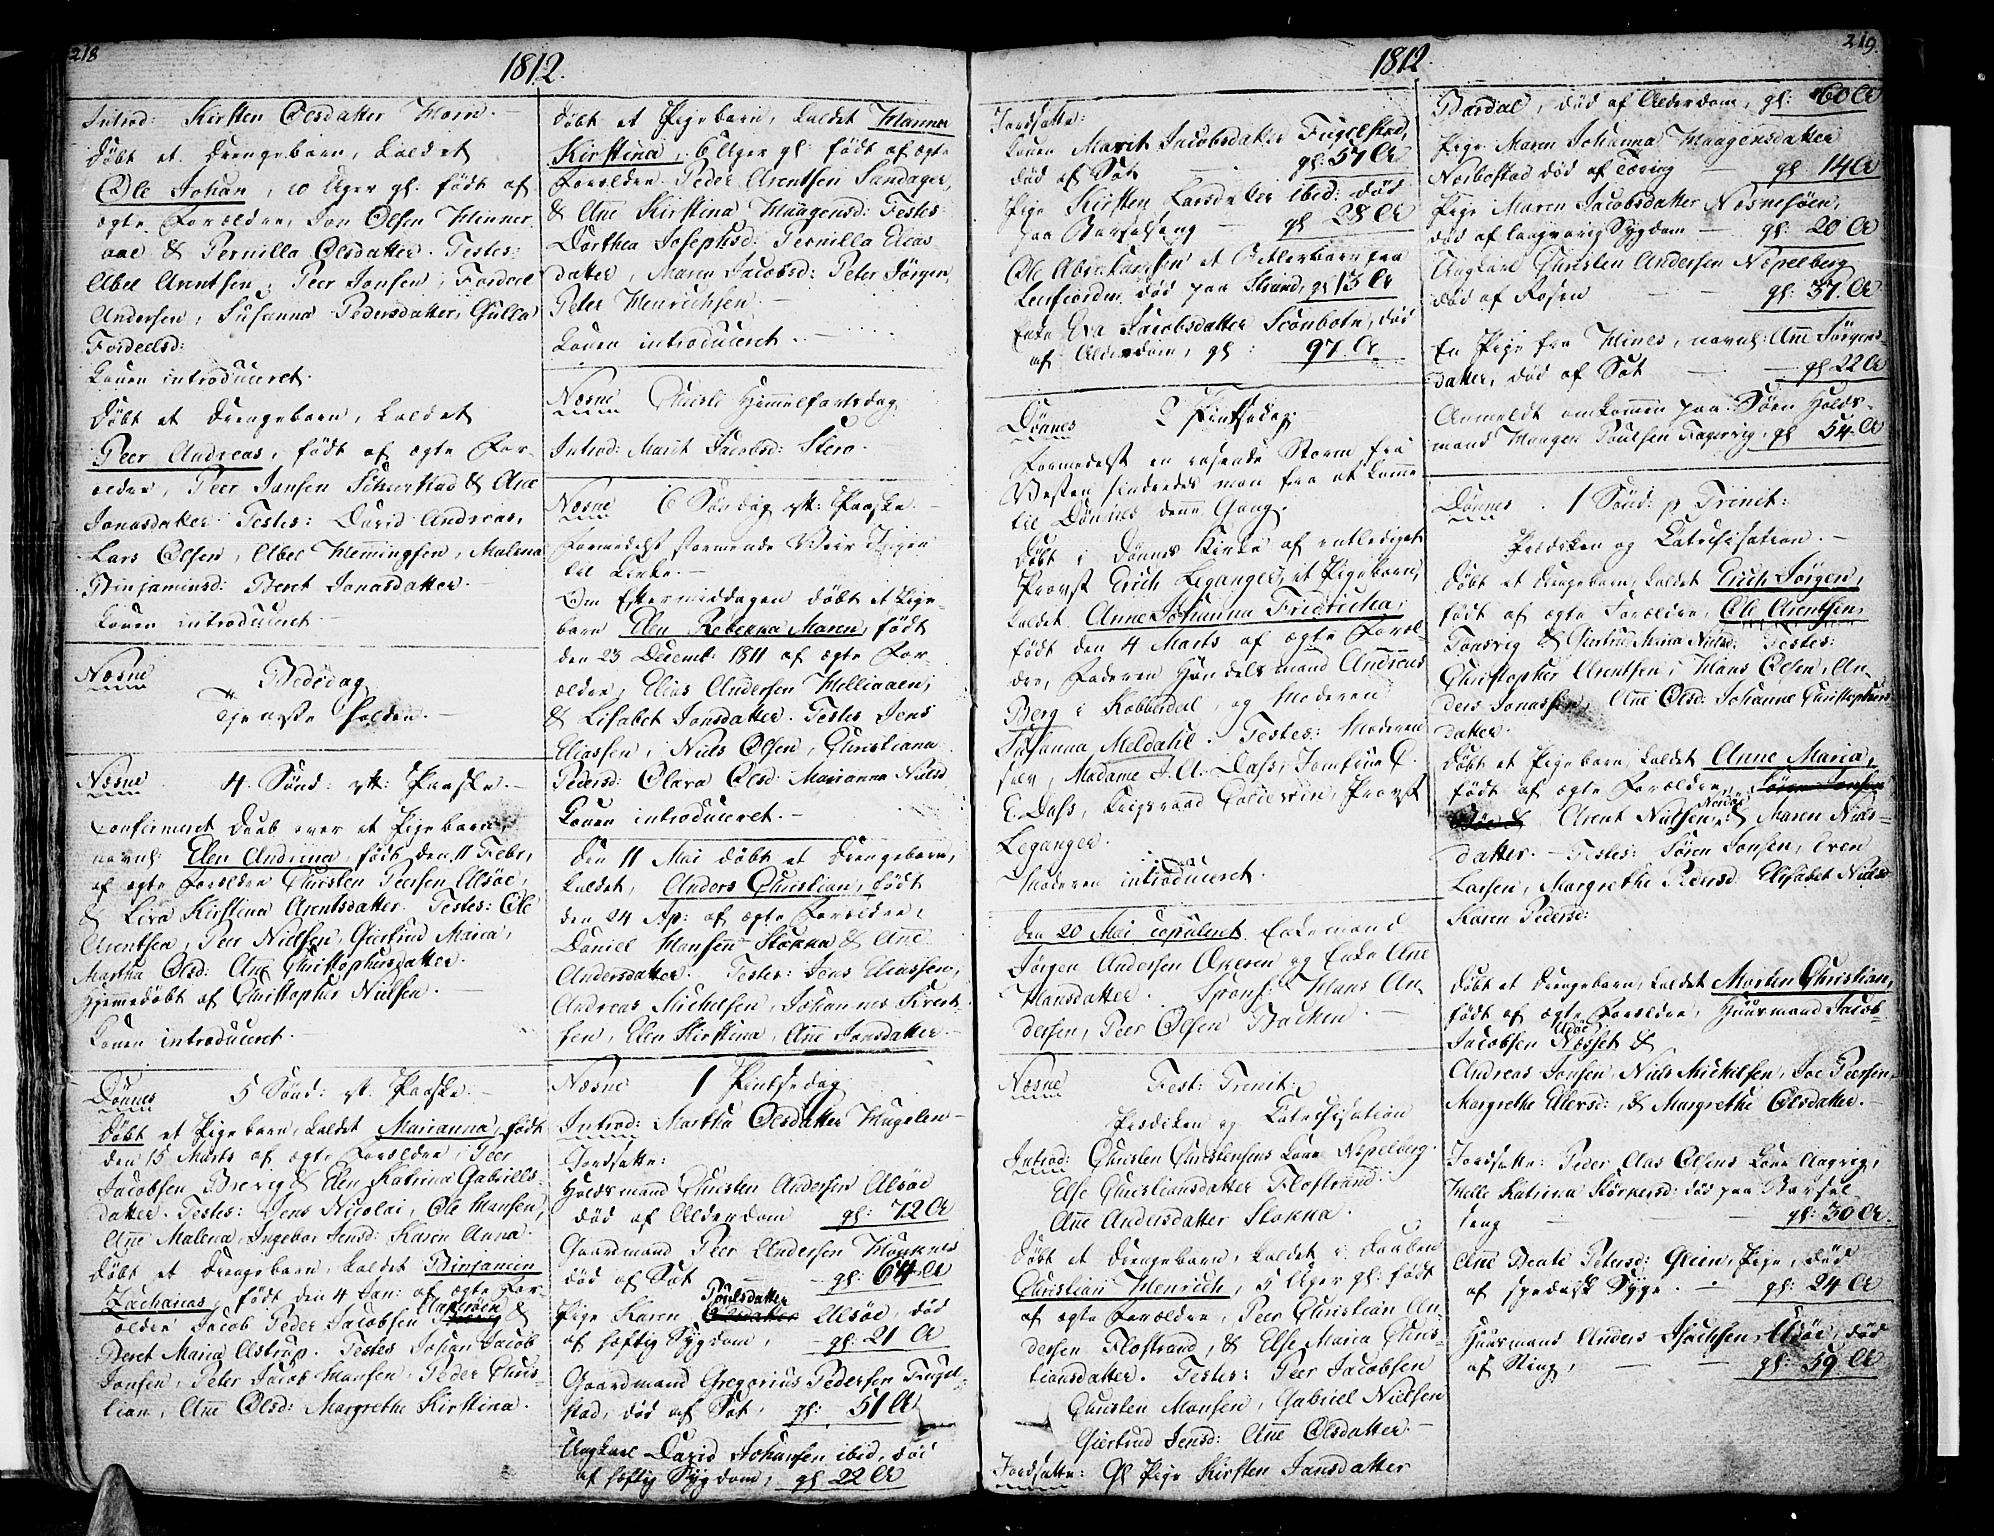 218
1812.
Introd: Kirsten Olsdatter Horn. —
Døbt et Drengebarn, kaldet
Ole Johan, 10 Uger gl: født af
ægte Forældre, Jon Olsen Hinner
aae & Pernilla Olsdatter. Testes:
Abel Arentsen, Peer Jonsen, Fordeel
Andersen, Susanna Pedersdatter, Gulla
Fordeelsd:
Konen introduceret.
Døbt et Drengebarn, kaldet
Peer Andreas, født af ægte For-
ældre, Peer Jansen Schierstad & Ane
Jonasdatter. Testes: David Andreas,
Lars Olsen, Abel Hemmingsen, Malena
Binjaminsd: Beret Jonasdatter. —
Konen introduceret —
Næsne Bededag
Tjeneste holden. —
Næsne 4. Sønd: eft: Paaske. —
Confirmeret Daab over et Pigebarn,
navnl: Elen Andrina, født den 11 Febr,
af ægte Forældre Christen Peersen Alsøe,
& Liva Kirstina Arentsdatter. Testes: Ole
Arentsen, Peer Nielsen, Giertrud Maria,
Martha Olsd: Ane Christophersdatter.
Hjemmedøbt af Christopher Nielsen. —
Konen introduceret.
Dønnes 5 Sønd: eft: Paaske. —
Døbt et Pigebarn, kaldet Marianna, født
den 15 Marts af ægte Forældre, Peer
Jacobsen Brevig & Elen Katrina Gabriels-
datter. Testes: Jens Nicolai, Ole Hansen,
Ane Malena, Ingebor Jensd: Karen Anna.
Døbt et Drengebarn, kaldet Binjamin
Zacharias, født den 4 Jan: af ægte For-
ældre Jacob Peder Jacobsen &
Beret Maria Astrup. Testes Johan Jacob
Jonsen, Peter Jacob Hansen, Peder Chris-
tian, Ane Olsd: Margrethe Kirstina.
Døbt et Pigebarn, kaldet Hanna
Kirstina, 6 Uger gl: født af ægte
Forældre Peder Arentsen Sandager,
& Ane Kirstina Haagensd: Testes
Dorthea Josephsd: Pernilla Elias
datter, Maren Jacobsd: Peter Jørgen,
Peter Henrichsen. —
Konen introduceret. —
Næsne Christi Himmelfartsdag.
Introd: Marit Jacobsd: Stero.
Næsne 6 Søndag eft: Paaske. —
Formedelst stormende Veir Ingen
til Kirke. —
Om Eftermiddagen døbt et Pige-
barn Elen Rebekka Maren, født
den 23 Decemb: 1811 af ægte For-
ældre, Elias Andersen Hellivaaen,
& Lisabet Jonsdatter. Testes Jens
Eliassen, Niels Olsen, Christiana
Pedersd: Olava Olsd: Marianna Nielsd
Konen introduceret. —
Den 11 Mai døbt et Drengebarn,
kaldet, Anders Christian, født
den 24 Ap: af ægte Forældre,
Daniel Hansen Stokka & Ane
Andersdatter. Testes: Jens Eliassen,
Andreas Michelsen, Johannes Sivert
sen, Elen Kirstina, Ane Jonsdatter. —
Næsne 1 Pintsedag
Introd: Martha Olsdatter Hugelen —
Jordsatte:
Huldsmand Christen Andersen Alsøe
død af Alderdom gl: 72 Ar
Gaardmand Peer Andersen Hauknes
død af Sot — gl: 64 Ar
Pige Karen Poulsdatter Alsøe død
af heftig Sygdom, — gl: 21 Ar
Gaardmand Gregorius Pedersen Fugel-
stad, død af Sot, gl: 51 Ar
Ungkarl David Johansen ibid, død
af heftig Sygdom, gl 22 Ar
1812.
219.
Jordsatte:
Konen Marit Jacobsdatter Fugelstad,
død af Sot — gl: 57 Ar
Pige Kirsten Larsdatter ibid: død
paa Barselseng — gl 28 Ar
Ole Abrahamsen et Betlerbarn fra
Lenfiorden død paa Strand, gl 13 Ar
Enke Eva Jacobsdatter Sconbotn, død
af Alderdom, gl: 97 Ar
Dønnes 2 Pintsedag.
Formedelst en rasende Storm fra
Vesten hindredes man fra at komme
til Dønnes denne Gang.
Døbt i Dønnes Kirke af entlediget
Provst Erich Leganger, et Pigebarn,
kaldet Anne Johanna Fredricka,
født den 4 Marts af ægte Foræl-
dre, Faderen Handelsmand Andreas
Berg i Kobberdal, og Moderen
Susanna Meldahl. Testes: Moderen
selv, Madame J. A. Dass, Jomfrue C.
E. Dass, Krigsraad Coldevin, Provst
Leganger.
Moderen introduceret.
Den 20 Mai copuleret Enkemand
Jørgen Andersen Okeren og Enke Ane
Hansdatter. Spons: Hans An-
dersen, Peer Olsen Backen. —
Næsne Fest: Trinit:
Prædiken og Catechisation
Introd: Christen Christensens Kone Nespelberg.
Else Christiansdatter Flostrand.
Ane Andersdatter Stokka.
Døbt et Drengebarn, kaldet i Daaben
Christian Henrich, 5 Uger gl: født
af ægte Forældre, Peer Christian An-
dersen Flostrand, & Else Maria Chris-
tiansdatter. Testes: Peer Jacobsen
Christen Hansen, Gabriel Nielsen
Giertrud Jensd: Ane Olsdatter. —
Jordsatte: Gl Pige Kirsten Jansdatter
Bardal, død af Alderdom, gl: 60 Ar
Pige Maren Johanna Haagensdatter
Norbostad død af Tæring — gl: 14 Ar
Pige Maren Jacobsdatter Næsnesøen,
død af langvarig Sygdom — gl: 20 Ar
Ungkarl Christen Andersen Nespelberg
død af Rosen — gl: 37 Ar
En Pige fra Hines, navnl: Ane Jørgens
datter, død af Sot — gl 22 Ar
Anmeldt omkommen paa Søen Holds-
mand Haagen Poulsen Fagervig, gl 54 Ar
Dønnes 1 Sønd: p Trinit:
Prædiken og Catechisation. —
Døbt et Drengebarn, kaldet Erich Jørgen,
født af ægte Forældre, Ole Arentsen,
Tonsvig & Giertrud Maria Nielsd: Testes:
Christopher Arentsen, Hans Olsen, An-
ders Jonassen, Ane Olsd: Johanne Christophers
datter.
Døbt et Pigebarn, kaldet Anne Maria,
født af ægte Forældre, Søren Jonsen
Arent Nielsen & Maren Niels-
datter. — Testes: Søren Jonsen, Even
Larsen, Margrethe Pedersd Elisabet Nielsd
Karen Pedersd:
Døbt et Drengebarn, kaldet Morten Christian,
født af ægte Forældre, Huusmand Jacob
Jacobsen Næsset &
Andreas Jonsen, Niels Michelsen, Joe Peersen,
Margrethe Ellersd: & Margrethe Olsdatter. —
Jordsatte: Peder Clas Olsens Kone Aagvig,
Helle Katrina Størkersd: død paa Barsel-
seng — gl: 30 Ar.
Ane Beate Petersd: Glein, Pige, død
af spedalsk Syge. — gl: 24 Ar
Huusmand Anders Isachsen Alsøe, død
af Sting, — gl: 59 Ar